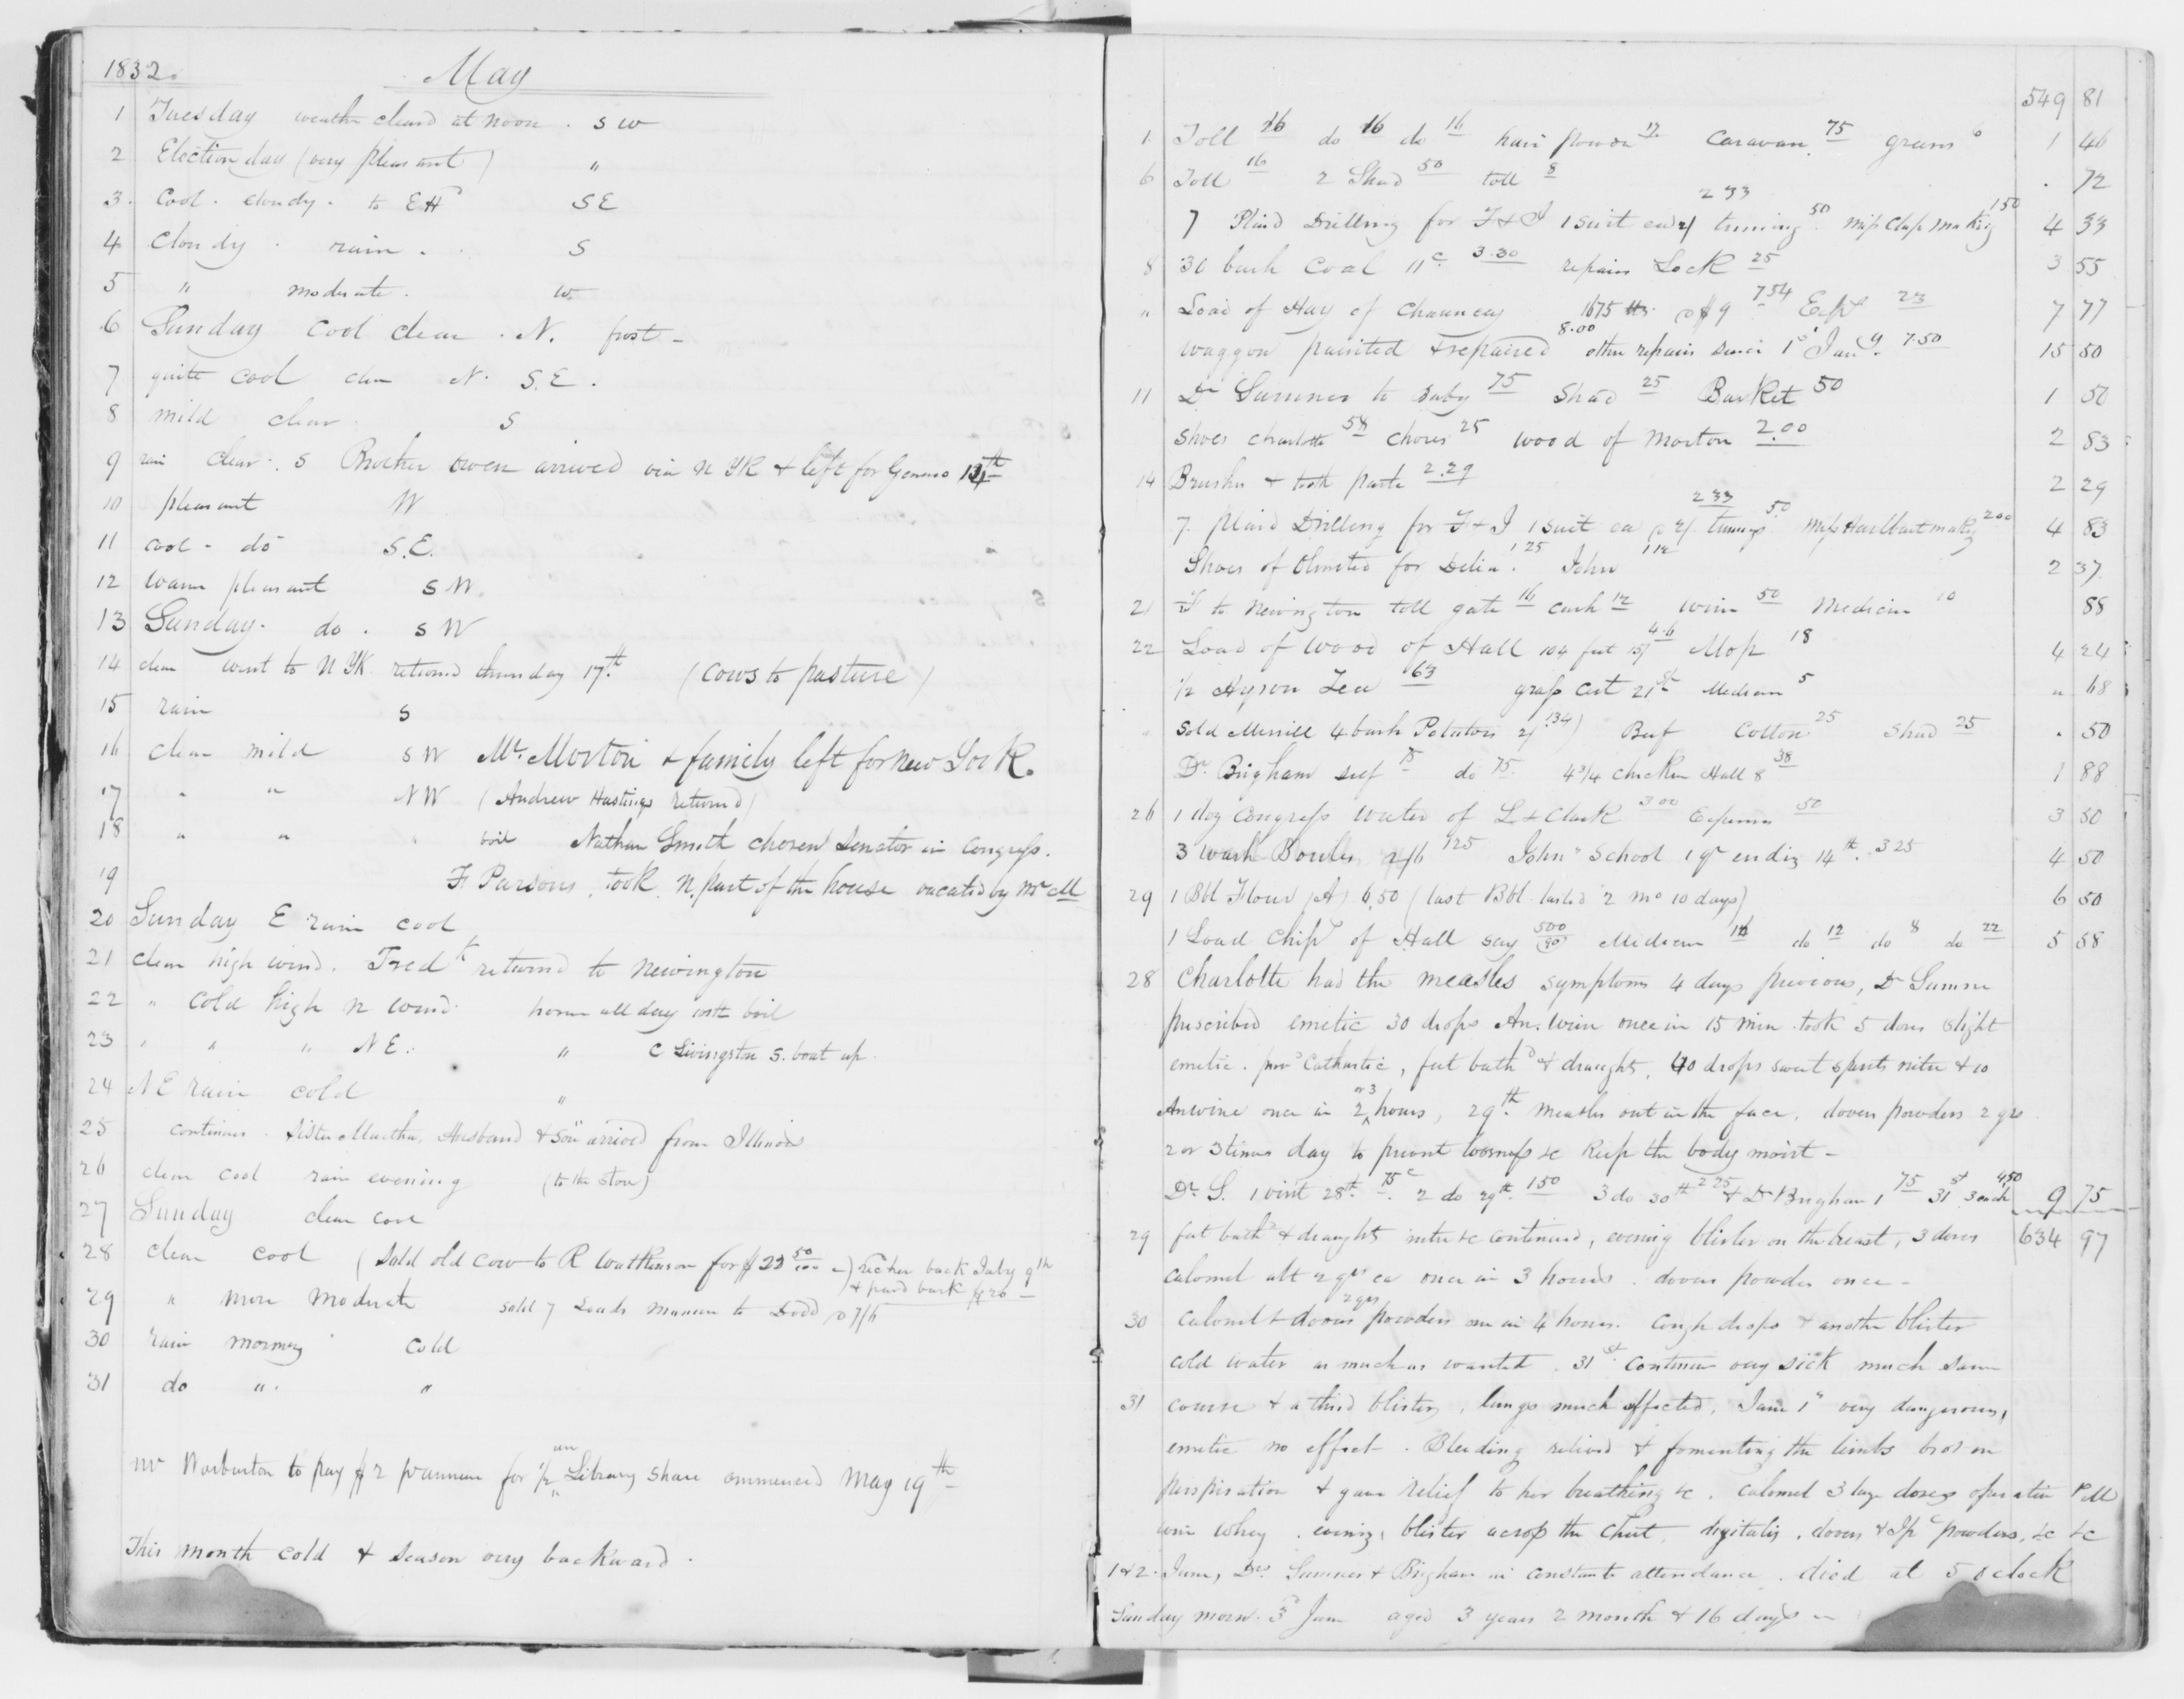 1832. May
1 Tuesday weather cleard at noon . S W
2 Election day (very pleasant) "
3. Cool . cloudy . to E Hd SE
4 Cloudy . rain . S
5 " moderate . W
6 Sunday cool clear . N. frost -
7 quite cool clear N. S.E.
8 mild clear S
9 rain clear . S Brother Owen arrived via N YK & left for Geneseo 14th
10 pleasant W
11 cool - do S.E.
12 warm pleasant S W.
13 Sunday . do . S W
14 clear went to N YK returned thursday 17th (Cows to pasture)
15 rain S
16 clear mild S W Mr. Morton & family left for New York.
17 " " N W (Andrew Hastings returned)
18 " " boil Nathan Smith chosen Senator in Congress.
19 F Parsons, took N. part of the house vacated by Mr M
20 Sunday E rain cool
21 clear high wind. Fredk returned to Newington
22 " cold high N wind . home all day with boil
23 " " " N E. " C Livingston S. boat up.
24 N E rain cold "
25 continues . Sister Martha, Husband & Son arrived from Illinois
26 clear cool rain evening (to the store)
27 Sunday clear cool
28 clear cool (Sold old cow to R Watkinson for $23 50/100 -) back July 9th
& paid back $20 -
29 " more moderate sold 7 Loads manure to Dodd @ 7/6
30 rain morning cold
31 do " . "
Mr Warburton to pay $2 pr annum for an 1/2 Library share commenced May 19th -
This month cold & season very backward .
549 81
1. Toll 26 do 16 do 16 hair powder 12 Caravan 75 greens 6 1 46
6 Toll 16 2 Shad 50 toll 8 . 72
7 Plaid Drilling for F & J 1 suit ea 2/ 233 triming 50 Miss Clapp making 150 4 33
8 30 bush Coal 11c 3.30 repairs Lock 25 3 55
" Load of Hay of Chauncey 1675 lbs @ $9 7.54 Exps 23 7 77
Waggon painted & repaired 8.00 other repairs since 1st Jany. 7.50 15 50
11 Dr Sumner to baby 75 Shad 25 Basket 50 1 50
Shoes charlotte 58 chores 25 wood of Morton 2.00 2 83
14 Brushes & tooth paste 2.29 2 29
7 plaid Drilling for F & J 1 suit ea @ 2/ 233 trimings 50 Miss Hurlburt making 200 4 83
Shoes of Olmsted for Delia 1.25 John 112 2 37
21 F to Newington toll gate 16 cash 12 wine 50 Medicine 10 88
22 Load of wood of Hall 104 feet 15/ 4.6 Mop 18 4 24
1/2 Hyson Tea 63 grass cut 21st Medicine 5 " 68
Sold Merrill 4 bush Potatoes 2/ 134) Beef Cotton 25 Shad 25 . 50
Dr. Brigham self 75 do 75 4 3/4 chicken Hall 8 38 1 88
26 1 doz Congress water of L & Clark 300 Expenses 50 3 50
3 wash Bowls 2/6 125 John" School 1 qr ending 14th. 325 4 50
29 1 Bbl Flour (A) 6.50 (last Bbl lasted 2 mo 10 days) 6 50
1 Load Chips of Hall say 500 Medicine 16 do 12 do 8 do 22 5 58
28 Charlotte had the measles symptoms 4 days previous, Dr Sumner
prescribed emetic 30 drops An. wine once in 15 min took 5 doses slight
emetic . Cathartic, feet bathd & draughts, 40 drops sweet spirits nitre & 10
An wine once in 2 or 3 hours, 29th. Measles out in the face, dovers powders 2 grs
2 or 3 times day to prevent looseness &c Keep the body moist -
Dr. S. 1 visit 28th. 75c 2 do 29th. 150 3 do 30th 225 & Dr Brigham 1 75 31st 3 each 4.50 9 75
29 feet bathd & draughts nitre &c continued, evening blister on the breast, 3 doses 634 97
Calomel alt 2 grs ea once in 3 hours . dovers powder once -
30 Calomel & dovers 2 grs powders one in 4 hours. Cough drops & another blister
cold water as much as wanted . 31st Continues very sick much same
31 course & a third blister, lungs much affected, June 1st very dangerous,
emetic no effect - . Bleeding relieved & fomenting the limbs brot on
perspiration & gave relief to her breathing &c . Calomel 3 large doses operation P M
wine whey . evening, blister across the chest, digitalis, dovers & Ip powders, &c &c
1 & 2. June, Drs Sumner & Brigham in constant attendance . died at 5 oclock
Sunday morn. 3d June aged 3 years 2 month & 16 days -